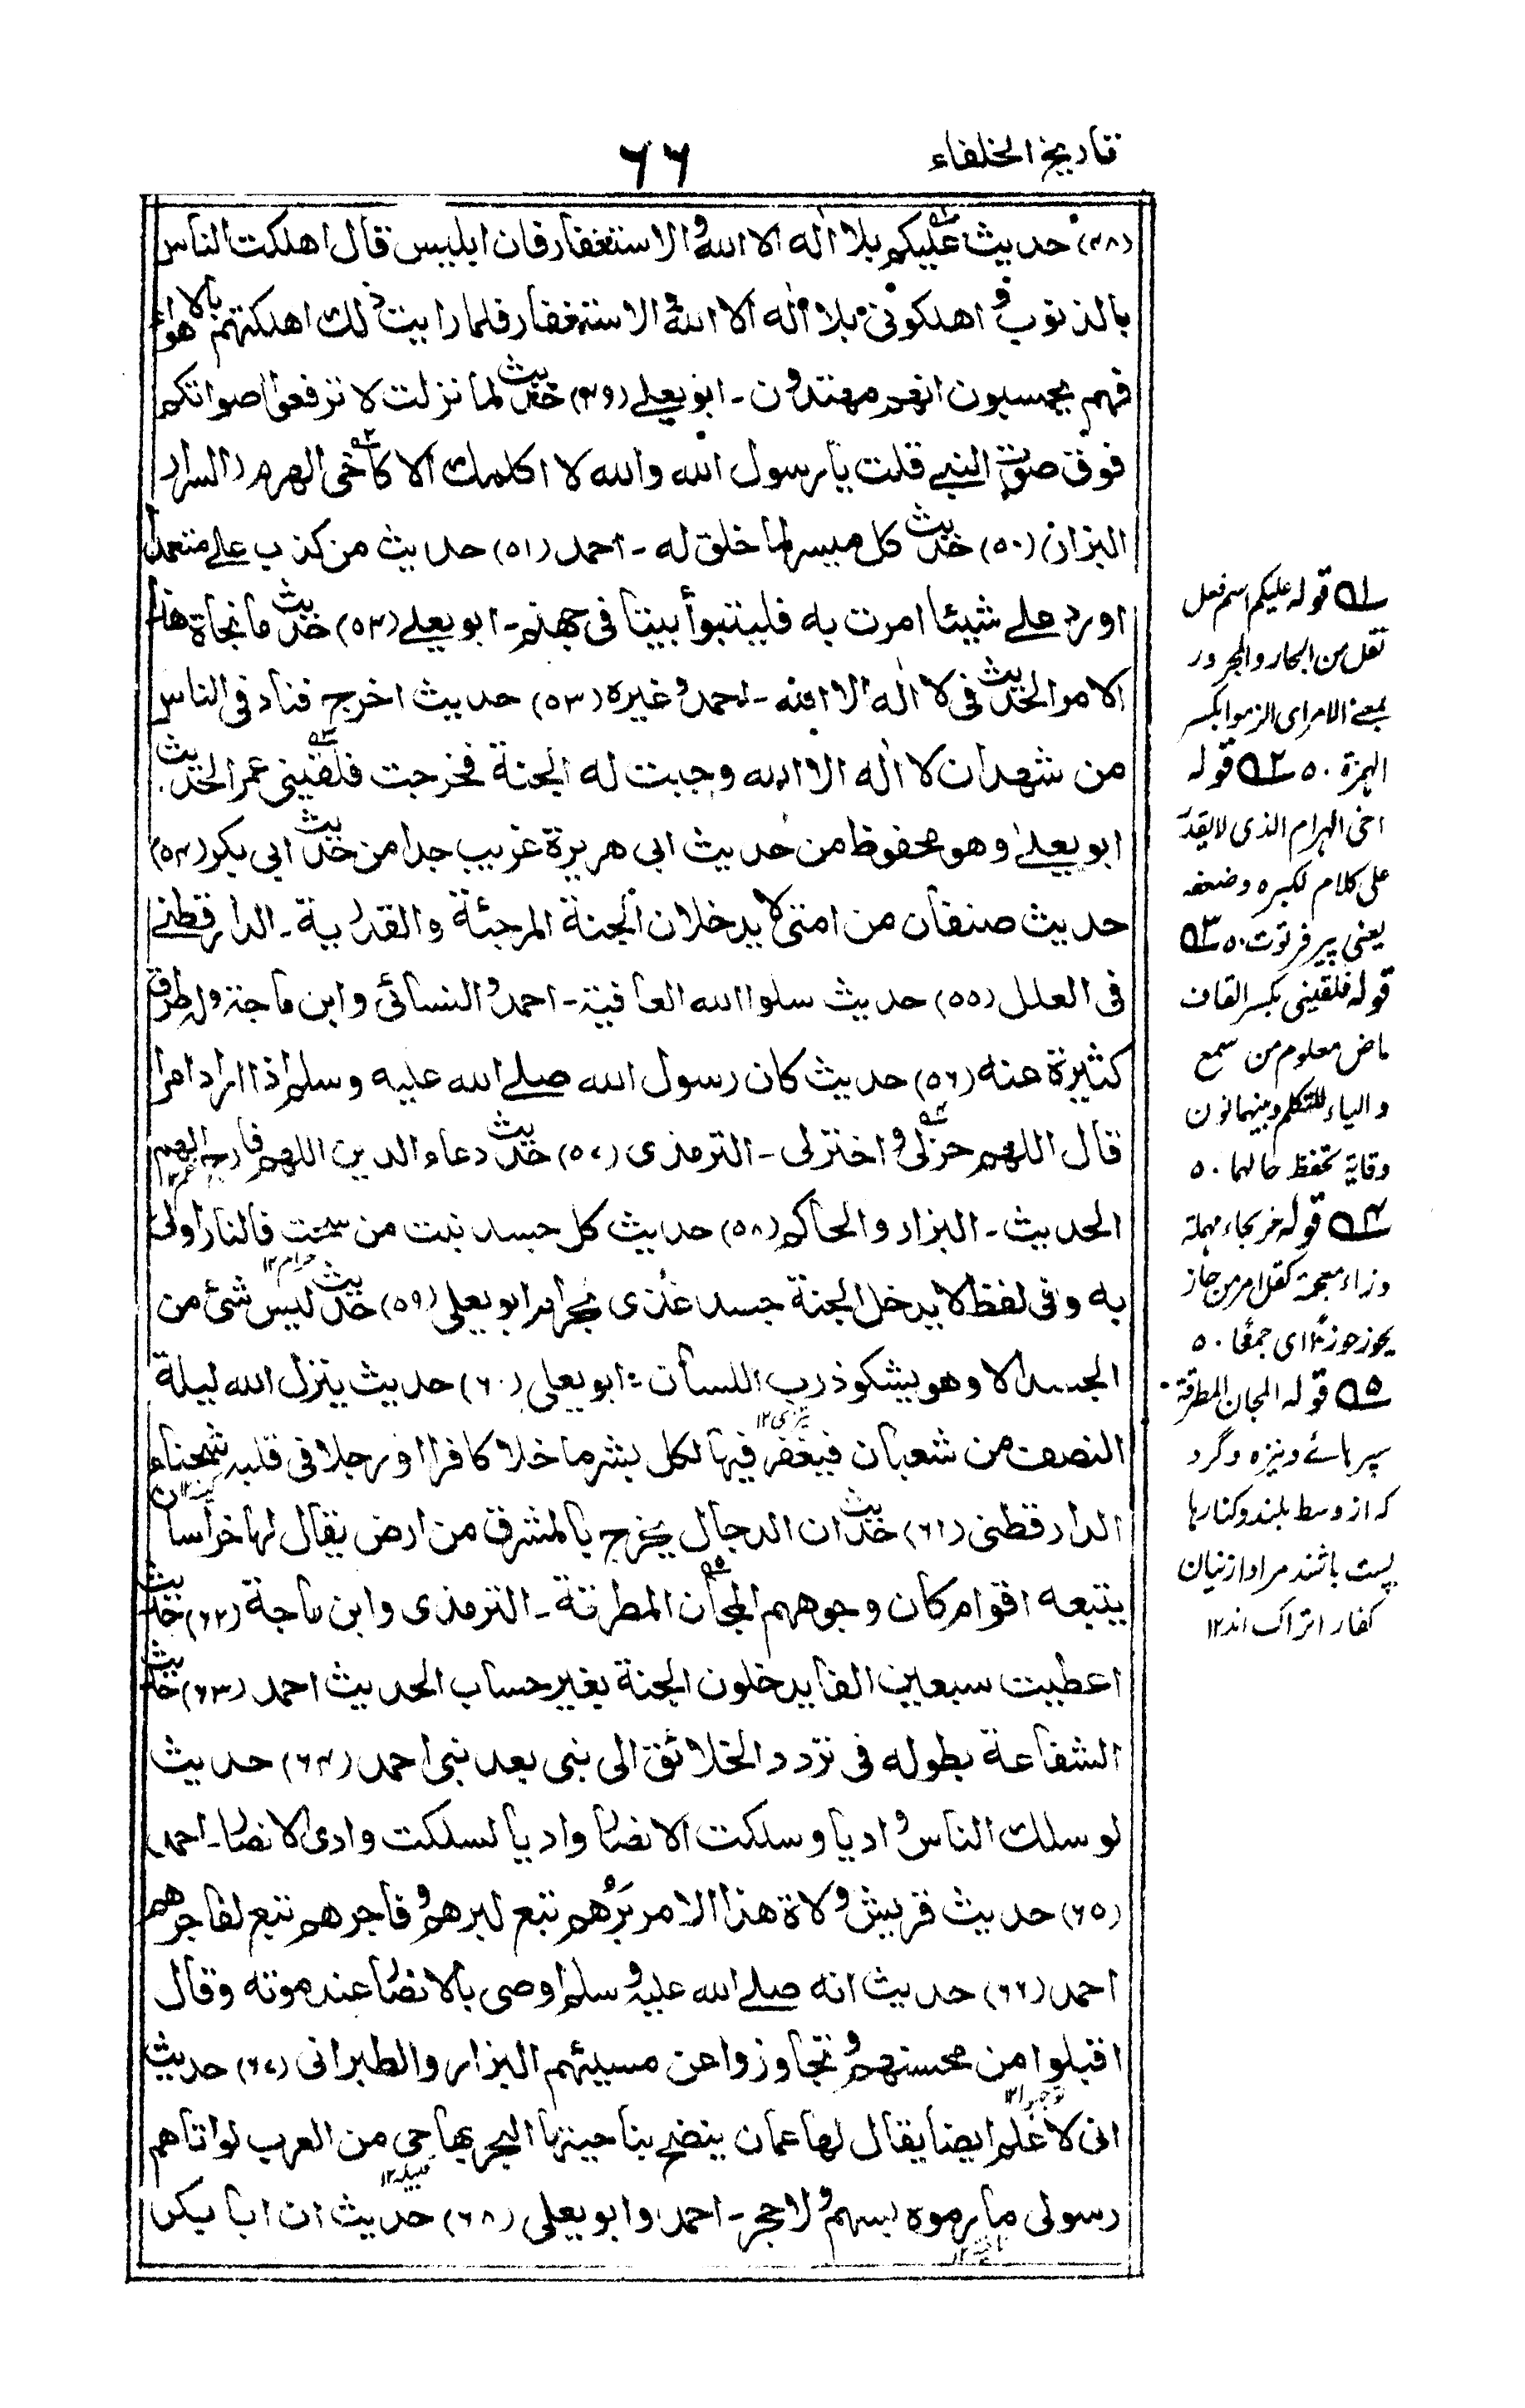 تاريخ الخلفاء
۶۶
(۴۸) حديث عليكم بلا اله الا الله والاستغفار فان ابليس قال اهلكت الناس
بالذنوب و اهلكونى بلا اله الا الله والاستغفار فلما رايت ذلك اهلكتهم بالاهواء
فهم يحسبون انهم مهتدون ـ ابو يعلے (۴۹) حديث لما نزلت لا ترفعوا اصواتكم
فوق صوت النبے قلت يا رسول الله والله لا اكلمك الا كاخى الهرم (السرار
البزار) (۵۰) حديث كل ميسر لما خلق له ـ احمد (۵۱) حديث من كذب علے متعمدا
او رد علے شيئا امرت به فليتبوأ بيتا فى جهنم ـ ابو يعلے (۵۲) حديث ما نجاة هذا
الامر الحديث فى لا اله الا الله ـ احمد وغيره (۵۳) حديث اخرج فناد فى الناس
من شهد ان لا اله الا الله وجبت له الجنة فخرجت فلقينى عمر الحديث.
ابو يعلے وهو محفوظ من حديث ابى هريرة غريب جدا من حديث ابى بكر (۵۴)
حديث صنفان من امتى لا يدخلان الجنة المرجئة والقدرية ـ الدارقطنے
فى العلل (۵۵) حديث سلوا الله العافية ـ احمد والنسائى وابن ماجة وله طرق
كثيرة عنه (۵۶) حديث كان رسول الله صلے الله عليه وسلم اذا اراد امرا
قال اللهم خزلى واخترلى ـ الترمذى (۵۷) حديث دعاء الدين اللهم فارج الهم
الحديث ـ البزار والحاكم (۵۸) حديث كل جسد نبت من سحت فالنار اولى
حرام ۱۲
به وفى لفظ لا يدخل الجنة جسد غذى بحرام ابو يعلى (۵۹) حديث ليس شئ من
الجسد الا وهو يشكو ذرب اللسان ؛ ابو يعلى (۶۰) حديث ينزل الله ليلة
تيزى ۱۲
النصف من شعبان فيغفر فيها لكل بشر ما خلا كافرا او رجلا فى قلبه شحناء
الدارقطنى (۶۱) حديث ان الدجال يخرج بالمشرق من ارض يقال لها خراسان
يتبعه اقوام كان وجوههم المجان المطرقة ـ الترمذى وابن ماجة (۶۲) حديث
اعطيت سبعين الفا يدخلون الجنة بغير حساب الحديث احمد (۶۳) حديث
الشفاعة بطوله فى تردد الخلائق الى نبى بعد نبى احمد (۶۴) حديث
لو سلك الناس واديا وسلكت الانصار واديا لسلكت وادى الانصار ـ احمد
(۶۵) حديث قريش ولاة هذا الامر برهم تبع لبرهم وفاجرهم تبع لفاجرهم
احمد (۶۶) حديث انه صلے الله عليه وسلم اوصى بالانصار عند موته وقال
اقبلوا من محسنهم وتجاوزوا عن مسيئهم البزار والطبرانى (۶۷) حديث
انى لاعلم ارضا يقال لها عمان ينضح بناحيتها البحر بها حى من العرب لو اتاهم
قبيلة ۱۲
رسولى ما رموه بسهم ولا حجر ـ احمد وابو يعلى (۶۸) حديث ان ابا بكر
۱ قوله عليكم اسم فعل
نقل من الجار والمجرور
بمعنے الامر اى الزموا بكسر
الهمزة ۵۰ ۲ قوله
اخى الهرام الذى لا يقدر
على كلام لكبره وضعفه
يعنى پير فرتوت ۵۰ ۳
قوله فلقينى بكسر القاف
ماض معلوم من سمع
والياء للمتكلم وبينهما نون
وقاية تحفظ حالها ۵۰
۴ قوله خر بحاء مهملة
وزاء معجمة كقل امر من حاز
يحوز حوزا اى جمعا ۵۰
۵ قوله المجان المطرقة
سپرهائے و نيزه و گرد
كه از وسط بلند و كنارها
پست باشند مراد از نيان
كفار اتراك اند ۱۲